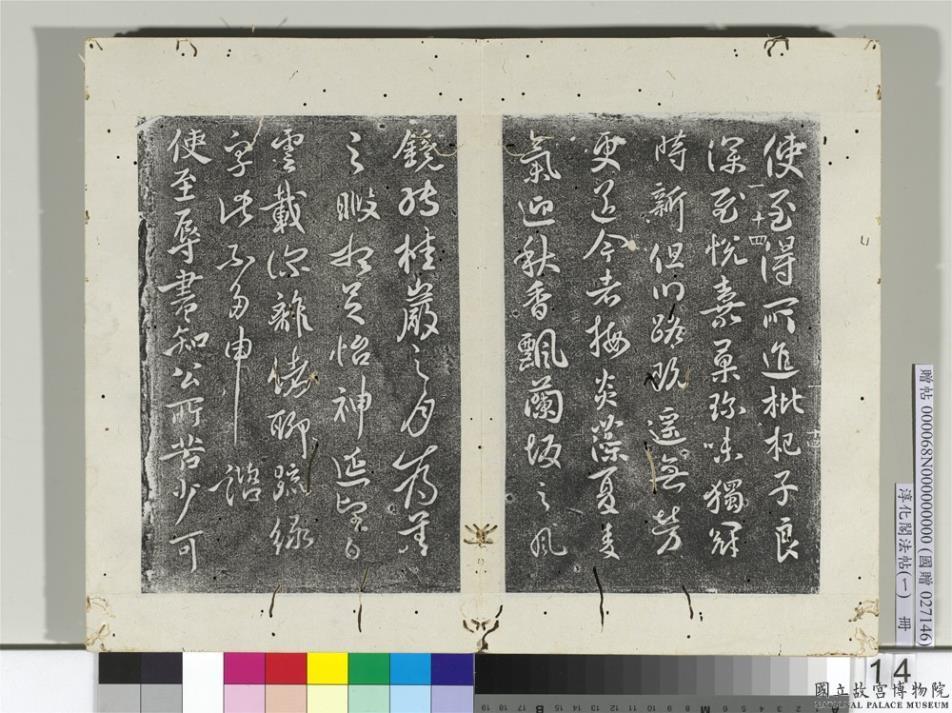 使至得所進枇杷子良
深至悅嘉果珍味獨冠
時新但川路既遙無勞
更送今者梅炎藻夏麦
氣迎秋香飄蘭坂之風
鏡轉桂巖之月為善
之暇想足怡神延望白
雲載深離緒聊疏縑
字此不多申 諮
使至辱書知公所苦少可
一十四
十四
贈帖 000068N000000000 (國贈 027146)
淳化閣法帖(一) 冊
14
國立故宮博物院
NATIONAL PALACE MUSEUM